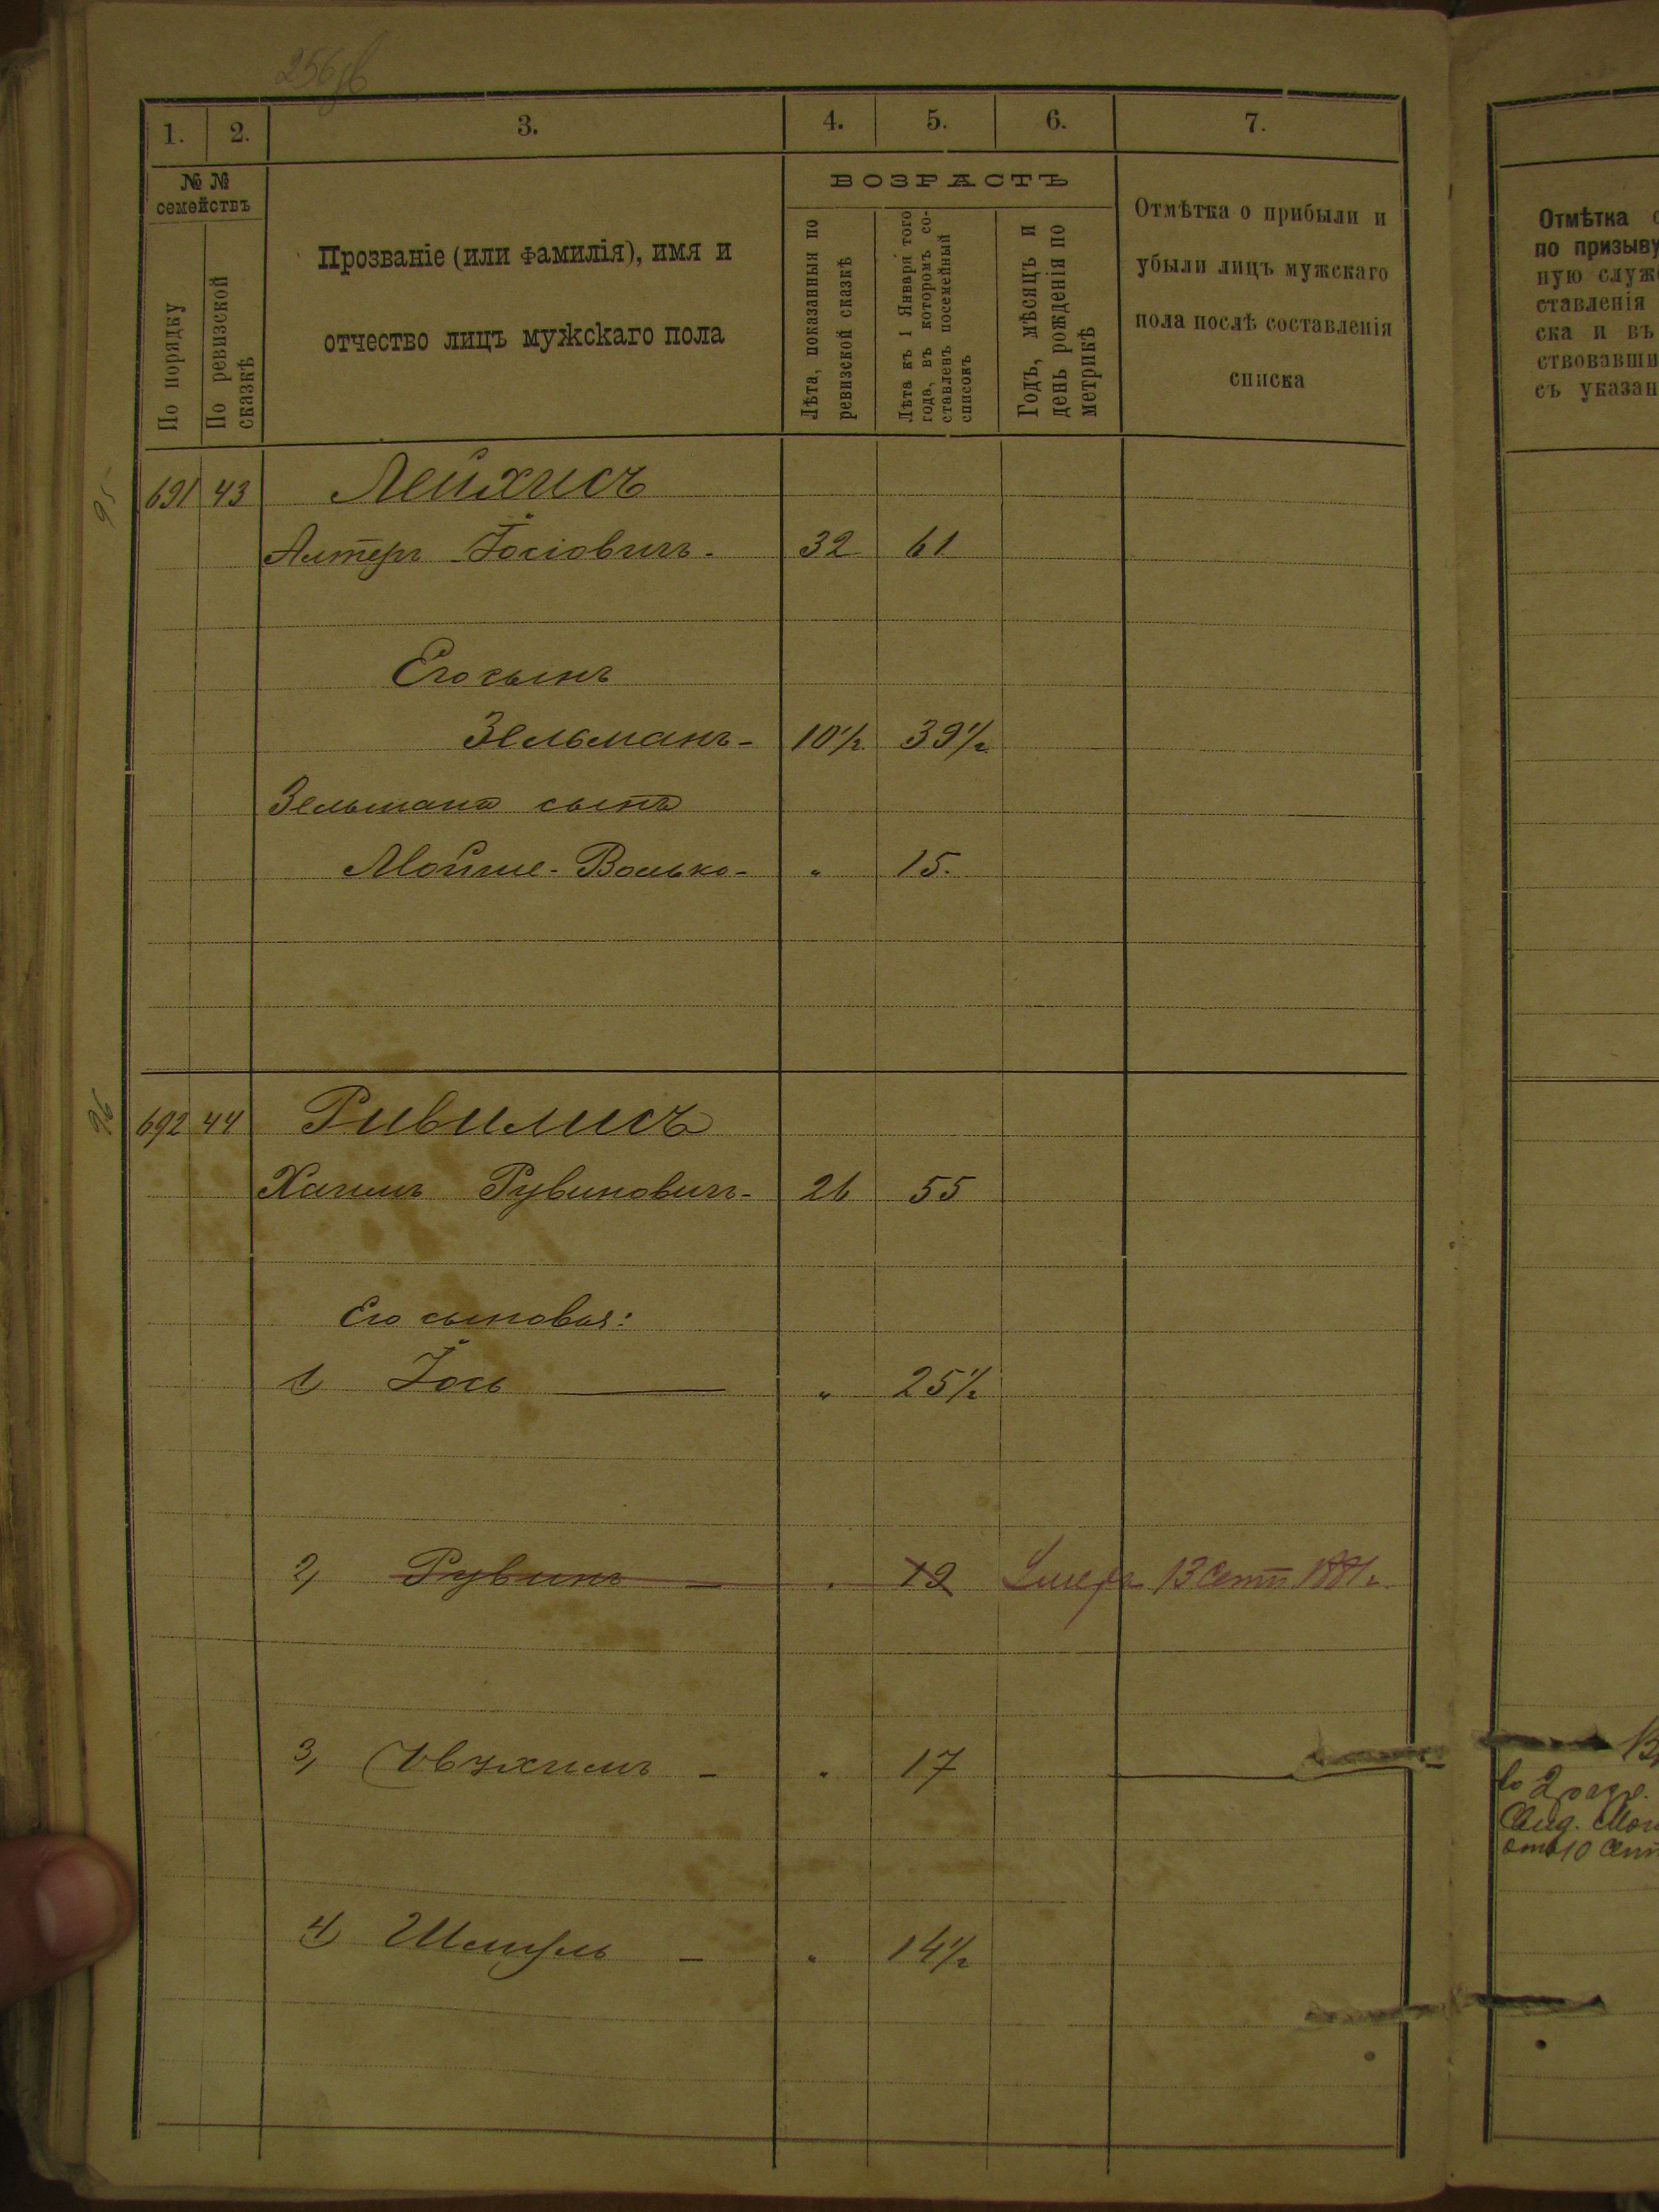 1. 2. 3. 4. 5. 6. 7.
№ №
семействъ
По порядку
По ревизской
сказкѣ
Прозваніе (или фамилія), имя и
отчество лицъ мужскаго пола
ВОЗРАСТЪ
Лѣта, показанныя по
ревизской сказкѣ
Лѣта къ 1 Января того
года, въ которомъ со-
ставленъ посемейный
списокъ
Годъ, мѣсяцъ и
день рожденія по
метрикѣ
Отмѣтка о прибыли и
убыли лицъ мужскаго
пола послѣ составленія
списка
95
691 43 Лейхисъ
Алтеръ Іосіовичъ. 32 61
Его сынъ
Зельманъ - 10½ 39½
Зельмана сынъ
Мойше-Волько - " 15.
96
692 44 Ривилисъ
Хаимъ Рувиновичъ - 26 55
Его сыновья:
1) Іось — " 25½
2) Рувинъ — " 19 Умеръ 13 Сент 1881 г.
3) - " 17
4) Шмуль - " 14½
Отмѣтка
по призыву
ную служ
ставленія
ска и въ
ствовавши
съ указан
во 2 разр.
отъ 10 Сент